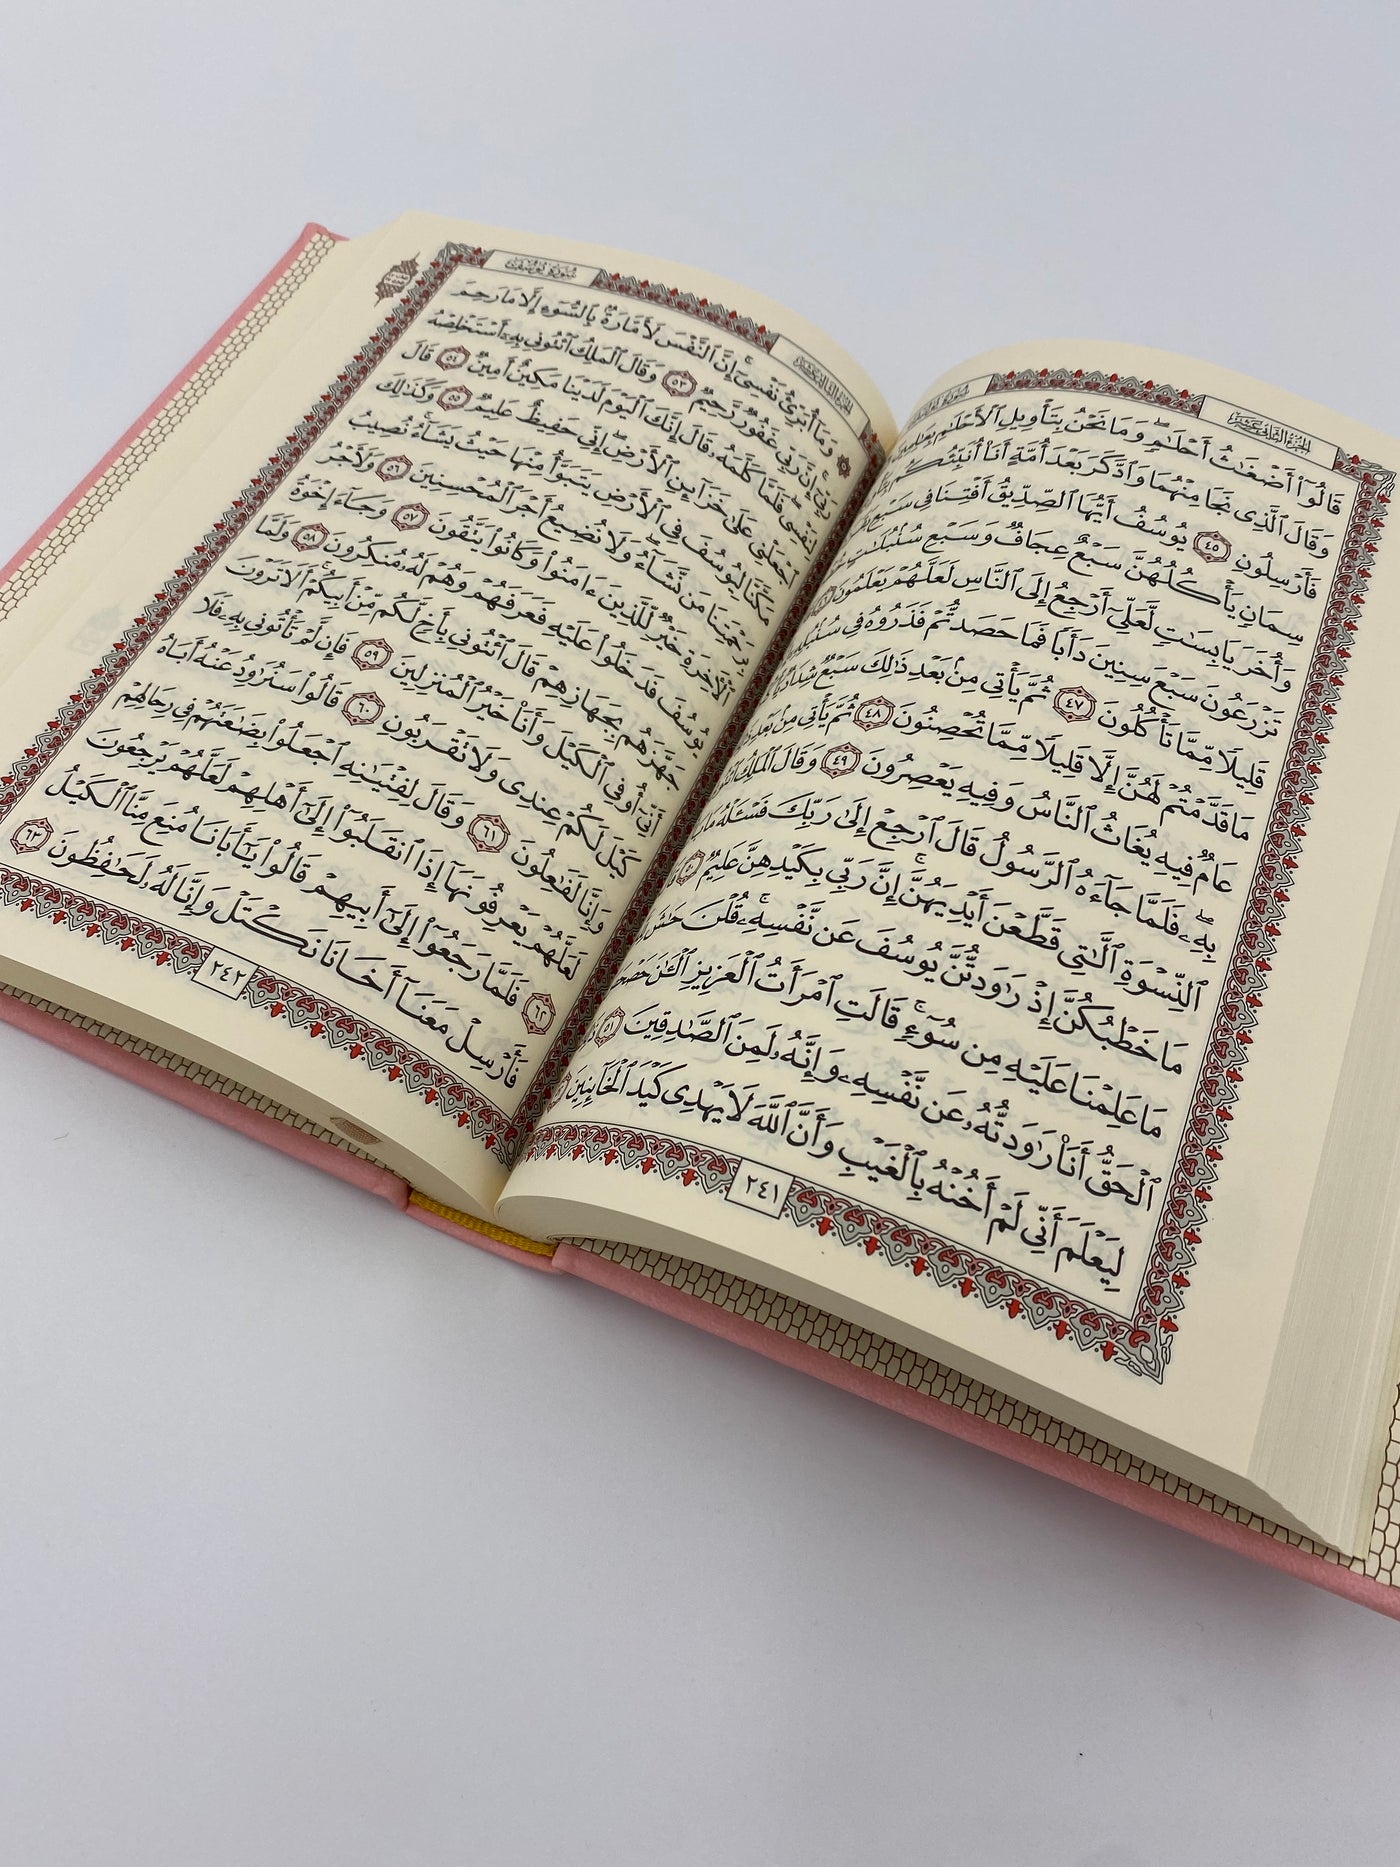 الجزء الثاني عشر
سورة يوسف
قَالُوٓا۟ أَضْغَٰثُ أَحْلَٰمٍ ۖ وَمَا نَحْنُ بِتَأْوِيلِ ٱلْأَحْلَٰمِ بِعَٰلِمِينَ
وَقَالَ ٱلَّذِى نَجَا مِنْهُمَا وَٱدَّكَرَ بَعْدَ أُمَّةٍ أَنَا۠ أُنَبِّئُكُم
فَأَرْسِلُونِ ٤٥ يُوسُفُ أَيُّهَا ٱلصِّدِّيقُ أَفْتِنَا فِى سَبْعِ
سِمَانٍ يَأْكُلُهُنَّ سَبْعٌ عِجَافٌ وَسَبْعِ سُنۢبُلَٰتٍ
وَأُخَرَ يَابِسَٰتٍ لَّعَلِّىٓ أَرْجِعُ إِلَى ٱلنَّاسِ لَعَلَّهُمْ يَعْلَمُونَ
تَزْرَعُونَ سَبْعَ سِنِينَ دَأَبًا فَمَا حَصَدتُّمْ فَذَرُوهُ فِى
قَلِيلًا مِّمَّا تَأْكُلُونَ ٤٧ ثُمَّ يَأْتِى مِنۢ بَعْدِ ذَٰلِكَ سَبْعٌ شِدَادٌ
مَا قَدَّمْتُمْ لَهُنَّ إِلَّا قَلِيلًا مِّمَّا تُحْصِنُونَ ٤٨ ثُمَّ يَأْتِى مِنۢ بَعْدِ
عَامٌ فِيهِ يُغَاثُ ٱلنَّاسُ وَفِيهِ يَعْصِرُونَ ٤٩ وَقَالَ ٱلْمَلِكُ
بِهِۦ ۖ فَلَمَّا جَآءَهُ ٱلرَّسُولُ قَالَ ٱرْجِعْ إِلَىٰ رَبِّكَ فَسْـَٔلْهُ مَا
ٱلنِّسْوَةِ ٱلَّٰتِى قَطَّعْنَ أَيْدِيَهُنَّ ۚ إِنَّ رَبِّى بِكَيْدِهِنَّ عَلِيمٌ ٥٠
مَا خَطْبُكُنَّ إِذْ رَٰوَدتُّنَّ يُوسُفَ عَن نَّفْسِهِۦ ۚ قُلْنَ حَٰشَ
مَا عَلِمْنَا عَلَيْهِ مِن سُوٓءٍ ۚ قَالَتِ ٱمْرَأَتُ ٱلْعَزِيزِ ٱلْـَٰٔنَ
ٱلْحَقُّ أَنَا۠ رَٰوَدتُّهُۥ عَن نَّفْسِهِۦ وَإِنَّهُۥ لَمِنَ ٱلصَّٰدِقِينَ ٥١
لِيَعْلَمَ أَنِّى لَمْ أَخُنْهُ بِٱلْغَيْبِ وَأَنَّ ٱللَّهَ لَا يَهْدِى كَيْدَ ٱلْخَآئِنِينَ
٢٤١
الجزء الثالث عشر
سورة يوسف
۞ وَمَآ أُبَرِّئُ نَفْسِىٓ ۚ إِنَّ ٱلنَّفْسَ لَأَمَّارَةٌۢ بِٱلسُّوٓءِ إِلَّا مَا رَحِمَ
رَبِّىٓ ۚ إِنَّ رَبِّى غَفُورٌ رَّحِيمٌ ٥٣ وَقَالَ ٱلْمَلِكُ ٱئْتُونِى بِهِۦٓ أَسْتَخْلِصْهُ
لِنَفْسِى ۖ فَلَمَّا كَلَّمَهُۥ قَالَ إِنَّكَ ٱلْيَوْمَ لَدَيْنَا مَكِينٌ أَمِينٌ ٥٤ قَالَ
ٱجْعَلْنِى عَلَىٰ خَزَآئِنِ ٱلْأَرْضِ ۖ إِنِّى حَفِيظٌ عَلِيمٌ ٥٥ وَكَذَٰلِكَ
مَكَّنَّا لِيُوسُفَ فِى ٱلْأَرْضِ يَتَبَوَّأُ مِنْهَا حَيْثُ يَشَآءُ ۚ نُصِيبُ
بِرَحْمَتِنَا مَن نَّشَآءُ ۖ وَلَا نُضِيعُ أَجْرَ ٱلْمُحْسِنِينَ ٥٦ وَلَأَجْرُ
ٱلْـَٔاخِرَةِ خَيْرٌ لِّلَّذِينَ ءَامَنُوا۟ وَكَانُوا۟ يَتَّقُونَ ٥٧ وَجَآءَ إِخْوَةُ
يُوسُفَ فَدَخَلُوا۟ عَلَيْهِ فَعَرَفَهُمْ وَهُمْ لَهُۥ مُنكِرُونَ ٥٨ وَلَمَّا
جَهَّزَهُم بِجَهَازِهِمْ قَالَ ٱئْتُونِى بِأَخٍ لَّكُم مِّنْ أَبِيكُمْ ۚ أَلَا تَرَوْنَ
أَنِّىٓ أُوفِى ٱلْكَيْلَ وَأَنَا۠ خَيْرُ ٱلْمُنزِلِينَ ٥٩ فَإِن لَّمْ تَأْتُونِى بِهِۦ فَلَا
كَيْلَ لَكُمْ عِندِى وَلَا تَقْرَبُونِ ٦٠ قَالُوا۟ سَنُرَٰوِدُ عَنْهُ أَبَاهُ
وَإِنَّا لَفَٰعِلُونَ ٦١ وَقَالَ لِفِتْيَٰنِهِ ٱجْعَلُوا۟ بِضَٰعَتَهُمْ فِى رِحَالِهِمْ
لَعَلَّهُمْ يَعْرِفُونَهَآ إِذَا ٱنقَلَبُوٓا۟ إِلَىٰٓ أَهْلِهِمْ لَعَلَّهُمْ يَرْجِعُونَ
٦٢ فَلَمَّا رَجَعُوٓا۟ إِلَىٰٓ أَبِيهِمْ قَالُوا۟ يَٰٓأَبَانَا مُنِعَ مِنَّا ٱلْكَيْلُ
فَأَرْسِلْ مَعَنَآ أَخَانَا نَكْتَلْ وَإِنَّا لَهُۥ لَحَٰفِظُونَ ٦٣
٢٤٢